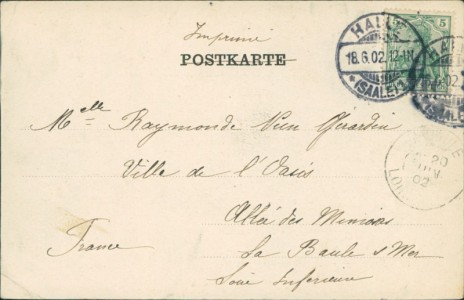 Imprimé
POSTKARTE
HALLE
18.6.02.12-1N
*(SAALE)1
5
5
Melle Raymonde Girardin
Ville de l'Oasis
Allée des Mimosas
France
La Baule s/Mer
Loire Inférieure
20
JUIN
02